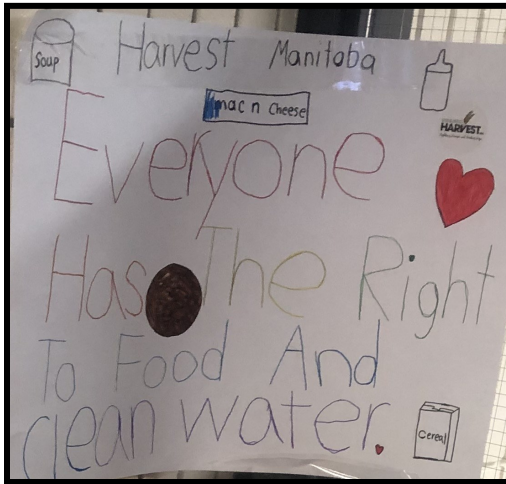 Soup
Harvest Manitoba
mac n cheese
HARVEST
Everyone
Has The Right
To Food And
clean water.
Cereal